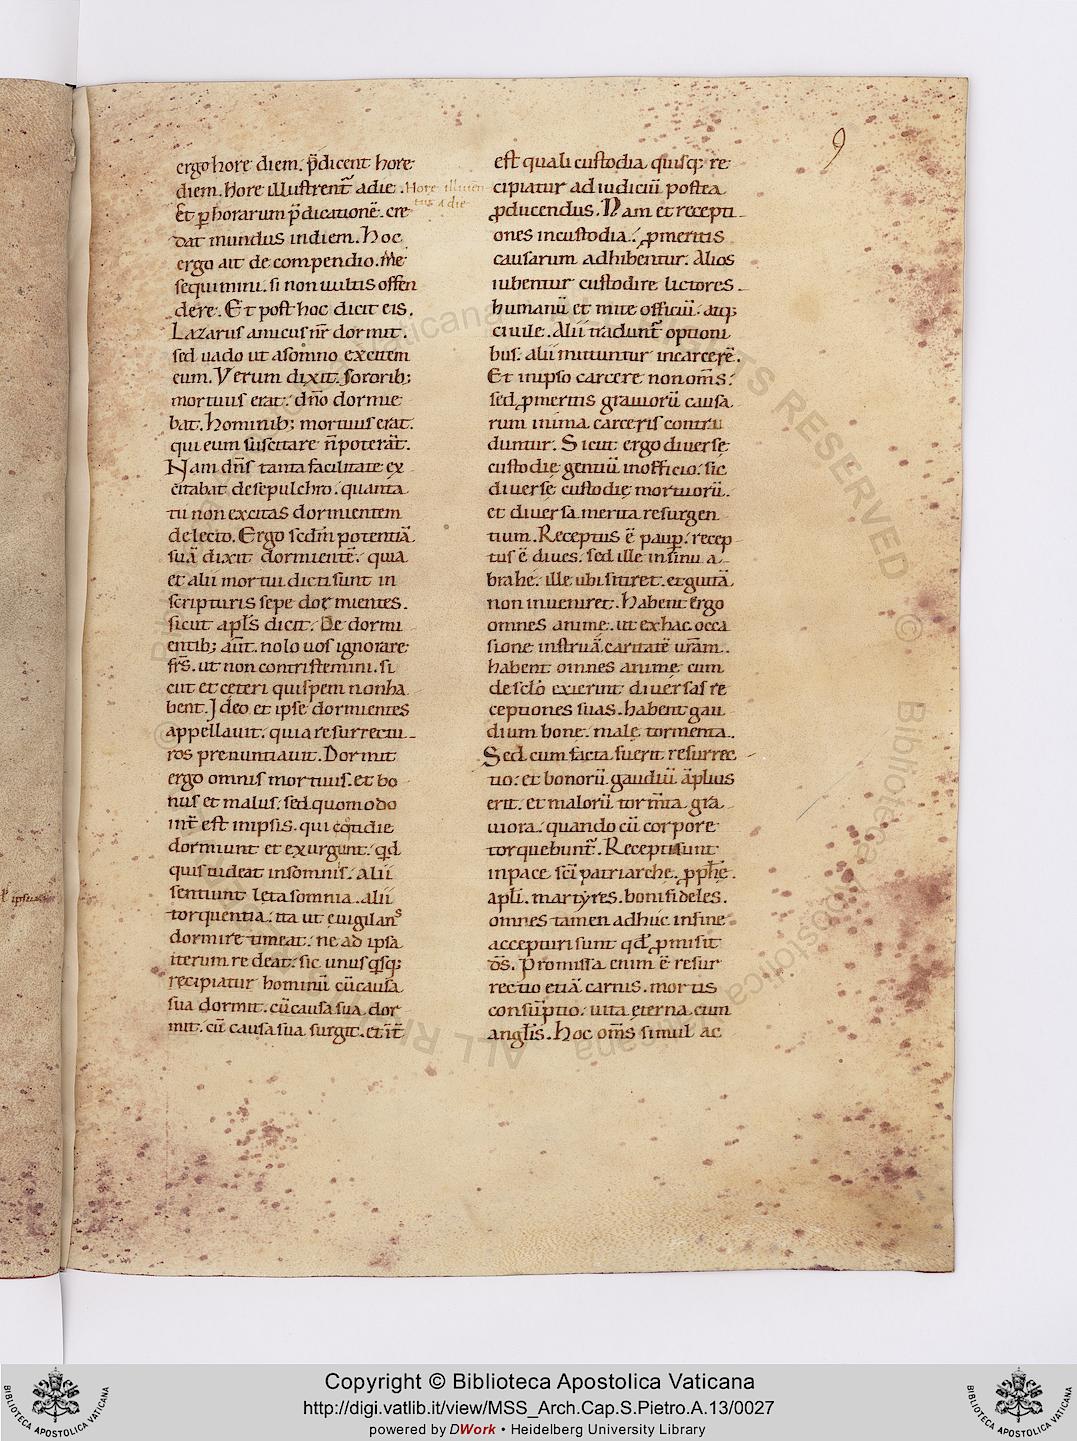 9
ergo hore diem. p̄dicent hore
diem. hore illustrent᷑ a die.
Et ꝑ horarum p̄dicationē. cre
dat mundus in diem. Hoc
ergo ait de compendio. me
sequimini. si non uultis offen
dere. Et post hoc dicit eis.
Lazarus amicus nr̄ dormit.
sed uado ut a somno excitem
eum. Verum dixit. sororib;
mortuus erat. dn̄o dormie
bat. hominib; mortuus erat.
qui eum suscitare n̄ poterāt.
Nam dn̄s tanta facilitate ex
citabat de sepulchro. quanta
tu non excitas dormientem
de lecto. Ergo scdm̄ potentiā
suā dixit dormientē. quia
et alii mortui dicti sunt in
scripturis sepe dormientes.
sicut apl̄s dicit. De dormi
entib; aūt. nolo uos ignorare
frs̄. ut non contristemini. si
cut et ceteri qui spem non ha
bent. Ideo et ipse dormientes
appellauit. quia resurrectu
ros prenuntiauit. Dormit
ergo omnis mortuus. et bo
nus et malus. sed quomodo
int̄ est in ipsis. qui cotidie
dormiunt et exurgunt. qd̄
quis uideat in somnis. alii
sentiunt leta somnia. alii
torquentia. ita ut euigilans
dormire timeat. ne ad ipsa
iterum redeat. sic unusqsq;
recipiatur hominū cū causa
sua dormit. cū causa sua dor
mit. cū causa sua surgit. et īt̄
Hore illumin
tur a die
est quali custodia quisq; re
cipiatur ad iudiciū postea
ꝓducendus. Nam et recepti
ones in custodia. ꝓ meritis
causarum adhibentur. Alios
iubentur custodire lictores.
humanū et mite officiū. atq;
ciuile. Alii tradunt᷑ optioni
bus. alii mittuntur in carcerē.
Et in ipso carcere non om̄s.
sed ꝓ meritis grauiorū causa
rum in ima carceris contru
duntur. Sicut ergo diuersę
custodię gentiū in officio. sic
diuersę custodię mortuorū.
et diuersa merita resurgen
tium. Receptus ē paup. recep
tus ē diues. sed ille in sinu a
brahe. ille ubi sitiret. et guttā
non inueniret. Habent ergo
omnes anime. ut ex hac occa
sione instruā caritatē ur̄am.
habent omnes anime cum
de sclo exierint diuersas re
ceptiones suas. habent gau
dium bone. male tormenta.
Sed cum facta fuerit resurrec
tio. et bonorū gaudiū āplius
erit. et malorū torm̄ta gra
uiora. quando cū corpore
torquebunt᷑. Recepti sunt
in pace sc̄i patriarche. ꝓphe.
apl̄i. martyres. boni fideles.
omnes tamen adhuc in fine
accepturi sunt qd̄ ꝓmisit
d̄s. Promissa enim ē resur
rectio etiā carnis. mortis
consūptio. uita ęterna cum
angl̄is. Hoc om̄s simul ac
Copyright © Biblioteca Apostolica Vaticana
http://digi.vatlib.it/view/MSS_Arch.Cap.S.Pietro.A.13/0027
powered by DWork • Heidelberg University Library
BIBLIOTECA APOSTOLICA VATICANA
BIBLIOTECA APOSTOLICA VATICANA